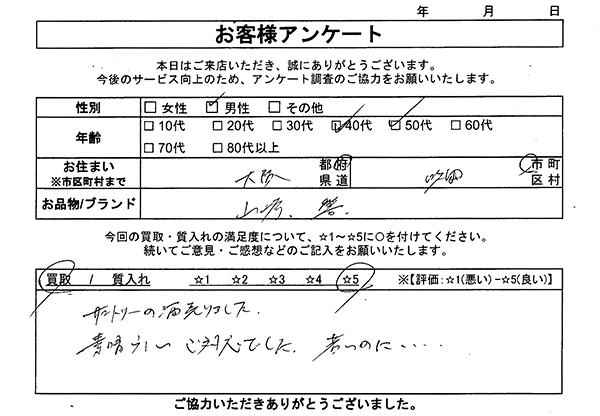 年 月 日
お客様アンケート
本日はご来店いただき、誠にありがとうございます。
今後のサービス向上のため、アンケート調査のご協力をお願いいたします。
性別 □ 女性 ☑ 男性 □ その他
年齢 □ 10代 □ 20代 □ 30代 ☑ 40代 ☑ 50代 □ 60代
□ 70代 □ 80代以上
お住まい 大阪 都府 吹田 市町
※市区町村まで 県道 区村
お品物/ブランド 山崎、響
今回の買取・質入れの満足度について、☆1~☆5に○を付けてください。
続いてご意見・ご感想などのご記入をお願いいたします。
買取 / 質入れ ☆1 ☆2 ☆3 ☆4 ☆5 ※【評価:☆1(悪い)-☆5(良い)】
サントリーの酒売りました。
素晴らしい ご対応でした。 若いのに・・・・
ご協力いただきありがとうございました。